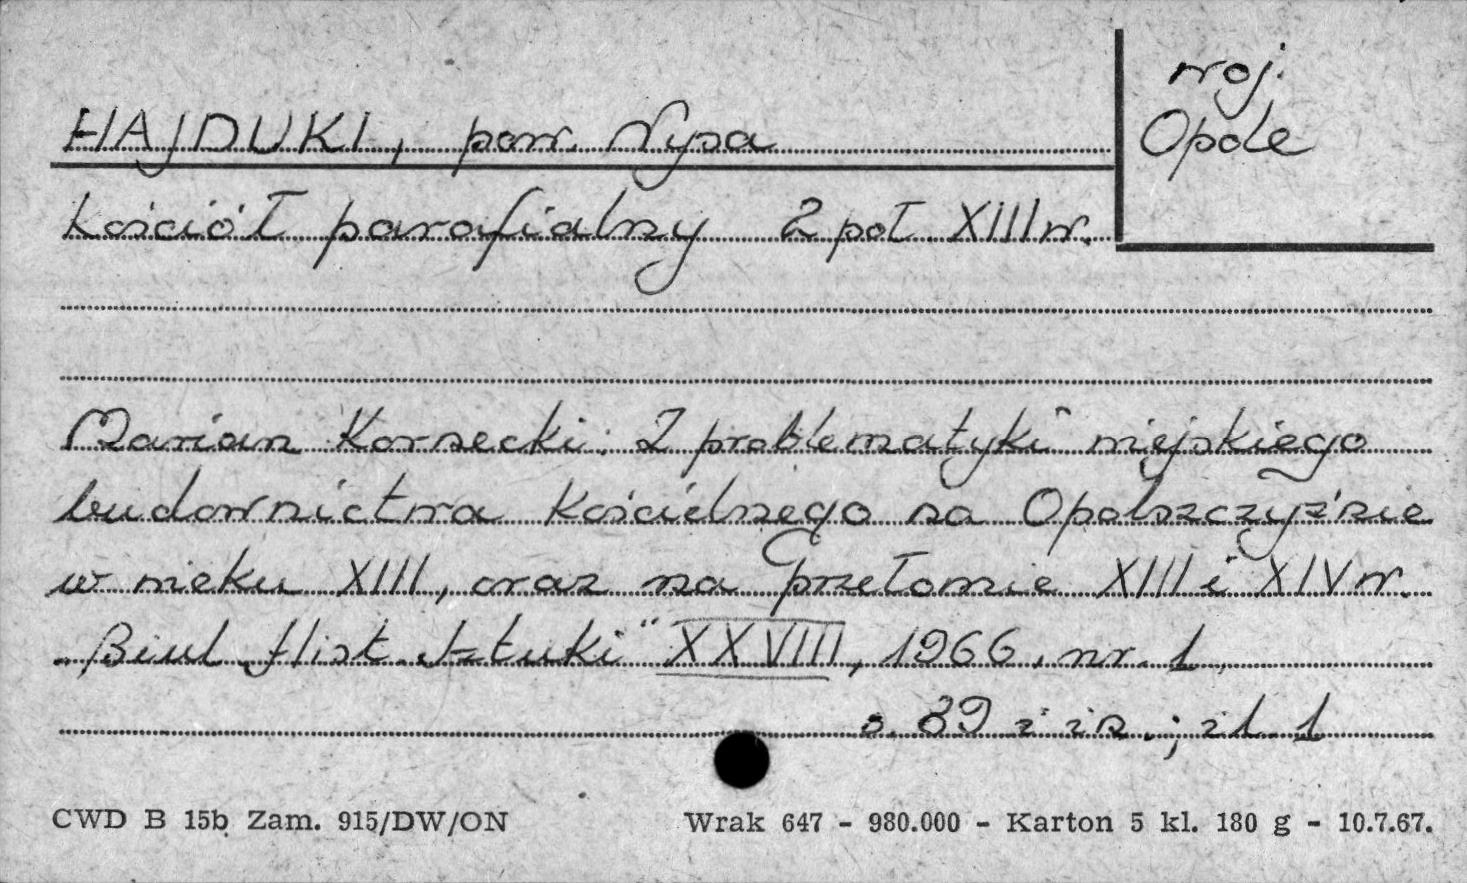 woj.
Opole
HAJDUKI, pow. Nysa
Kościół parafialny 2 poł XIII w.
Marian Kornecki: Z problematyki miejskiego
budownictwa kościelnego na Opolszczyźnie
w wieku XIII, oraz na przełomie XIII i XIV w.
„Biul. Hist. Sztuki" XXVIII, 1966, nr. 1,
s. 89 i in.; il. 1
CWD B 15b Zam. 915/DW/ON Wrak 647 - 980.000 - Karton 5 kl. 180 g - 10.7.67.